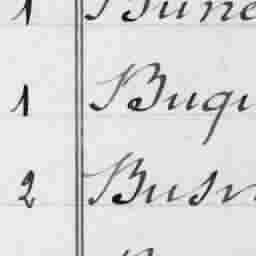 1 Bune
1 Buqu
2 Busn